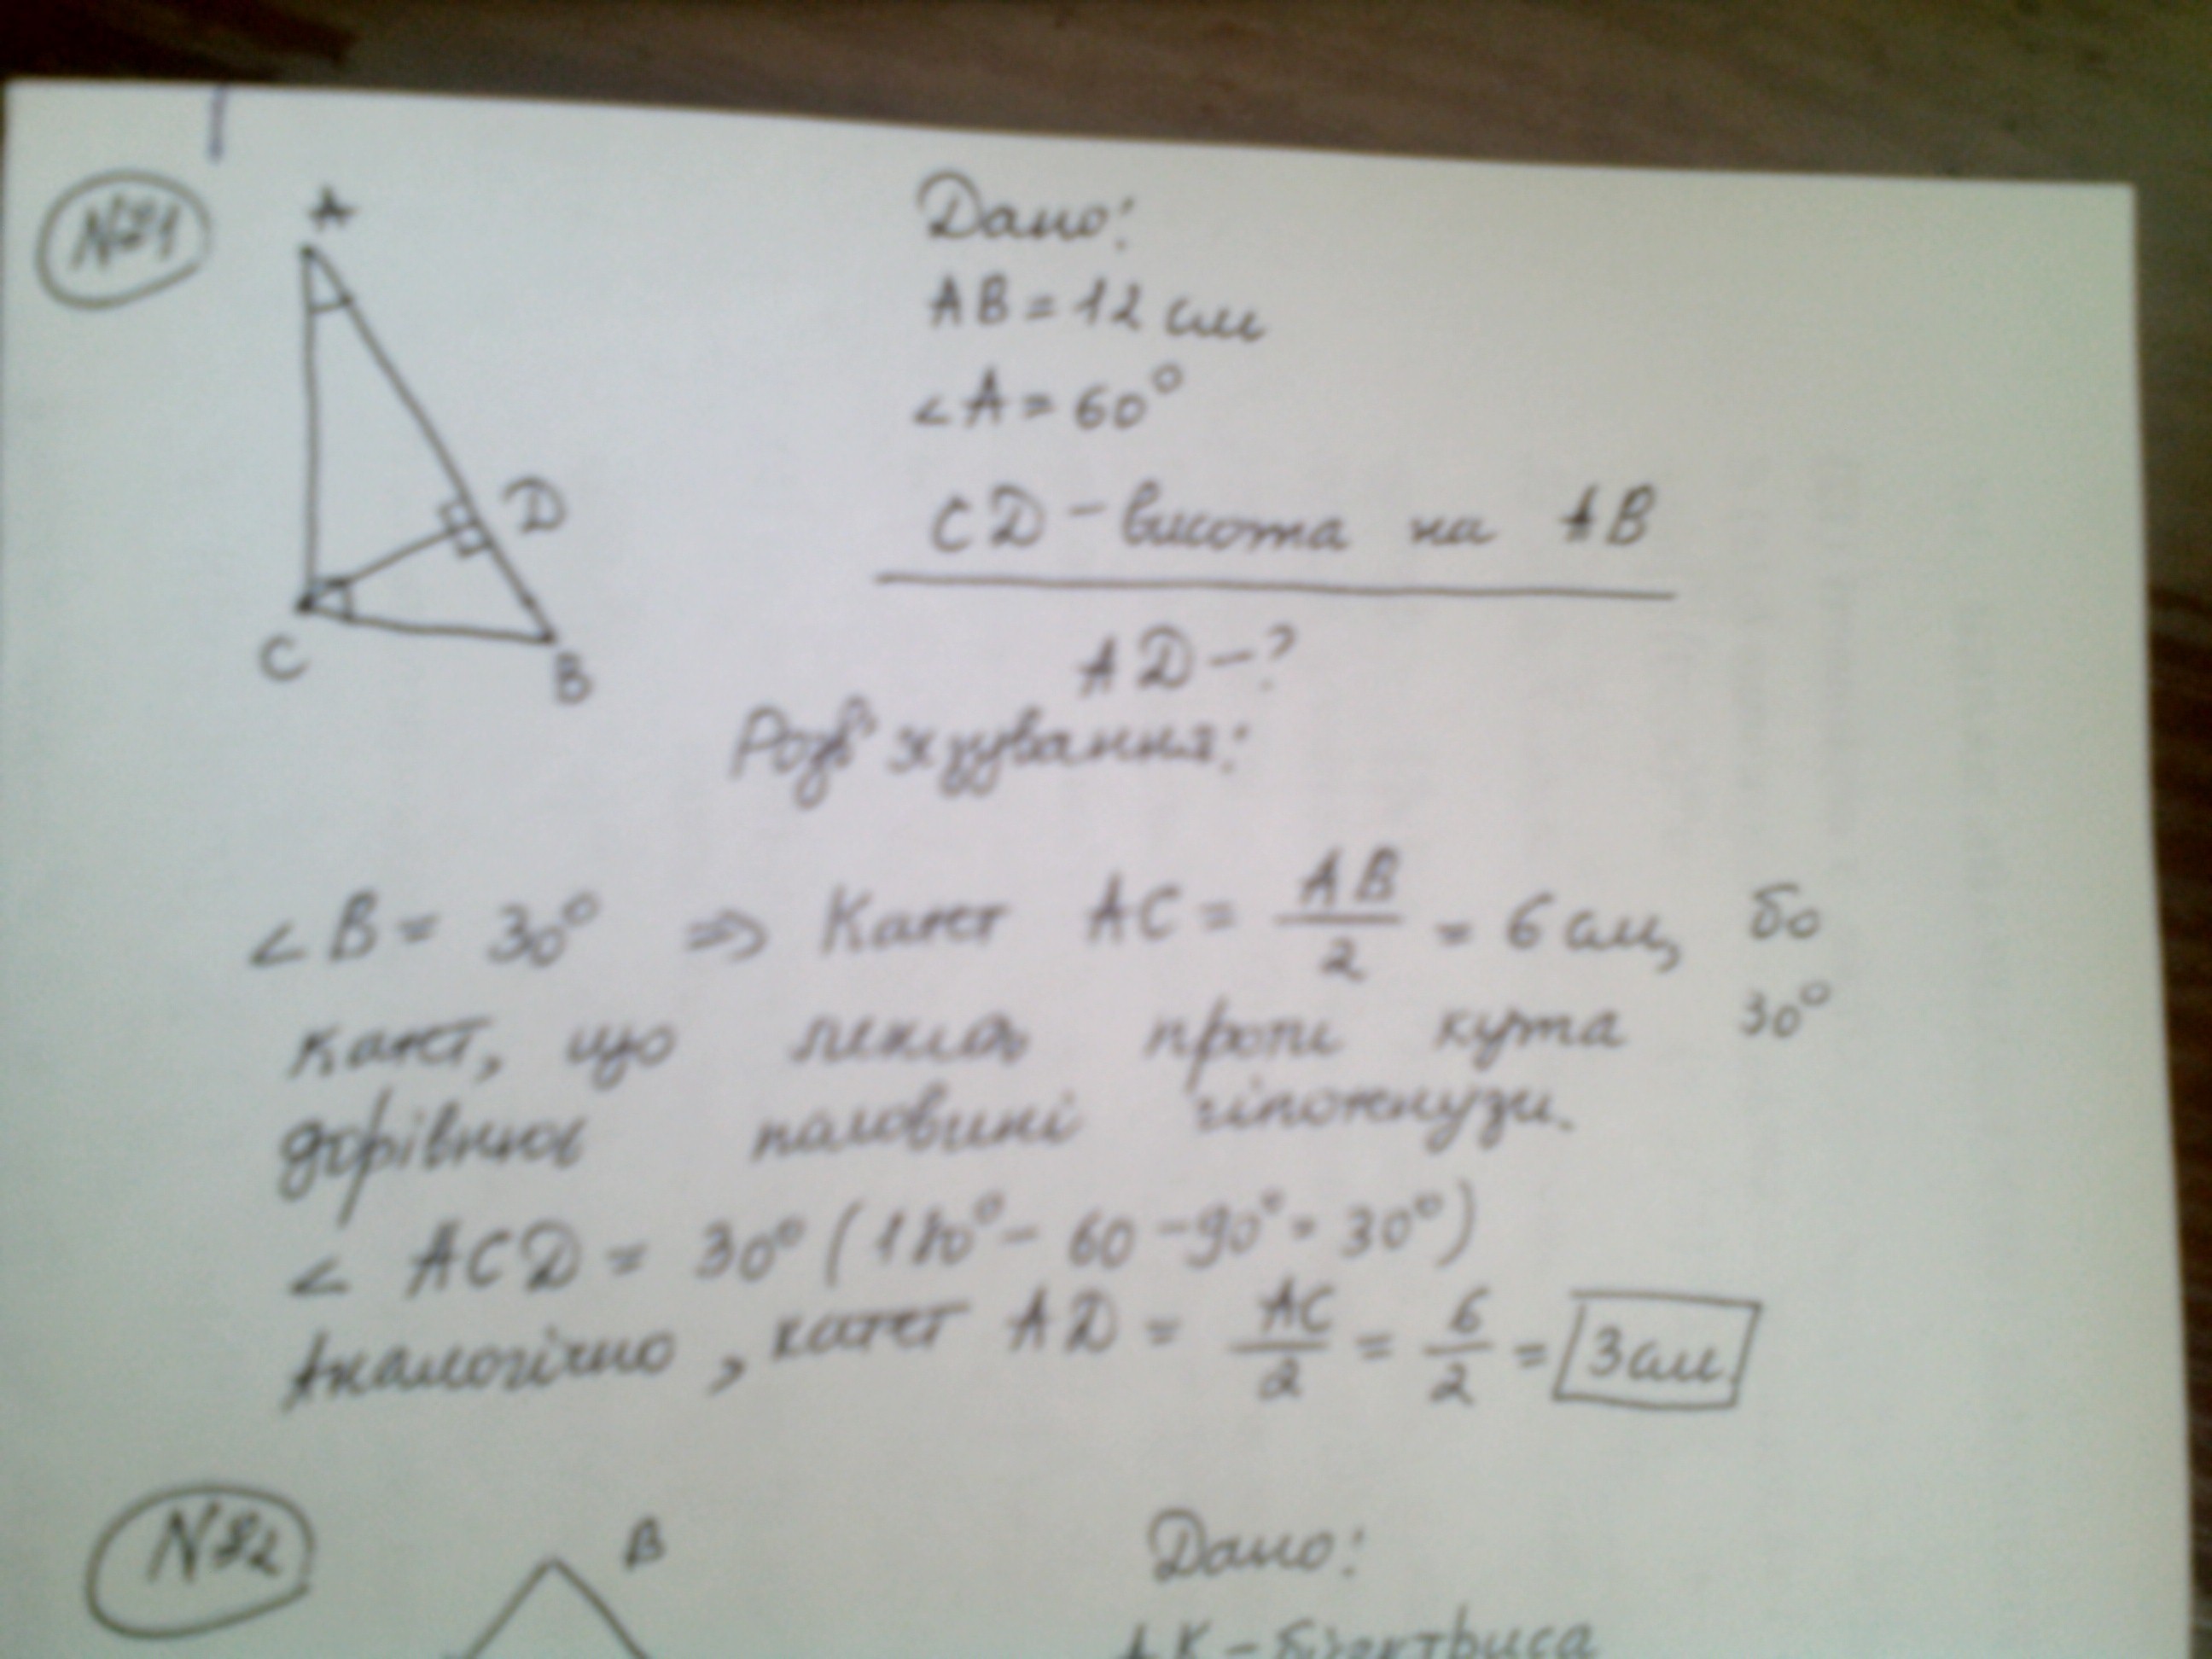 №21
A
D
C
B
Дано:
AB = 12 см
∠A = 60°
CD - висота на AB
AD - ?
Розв'язування:
∠B = 30° ⇒ Катет AC = AB/2 = 6 см, бо
катет, що лежить проти кута 30°
дорівнює половині гіпотенузи.
∠ ACD = 30° (180° - 60 - 90° = 30°)
Аналогічно, катет AD = AC/2 = 6/2 = 3 см
№22
B
Дано:
AK - бісектриса